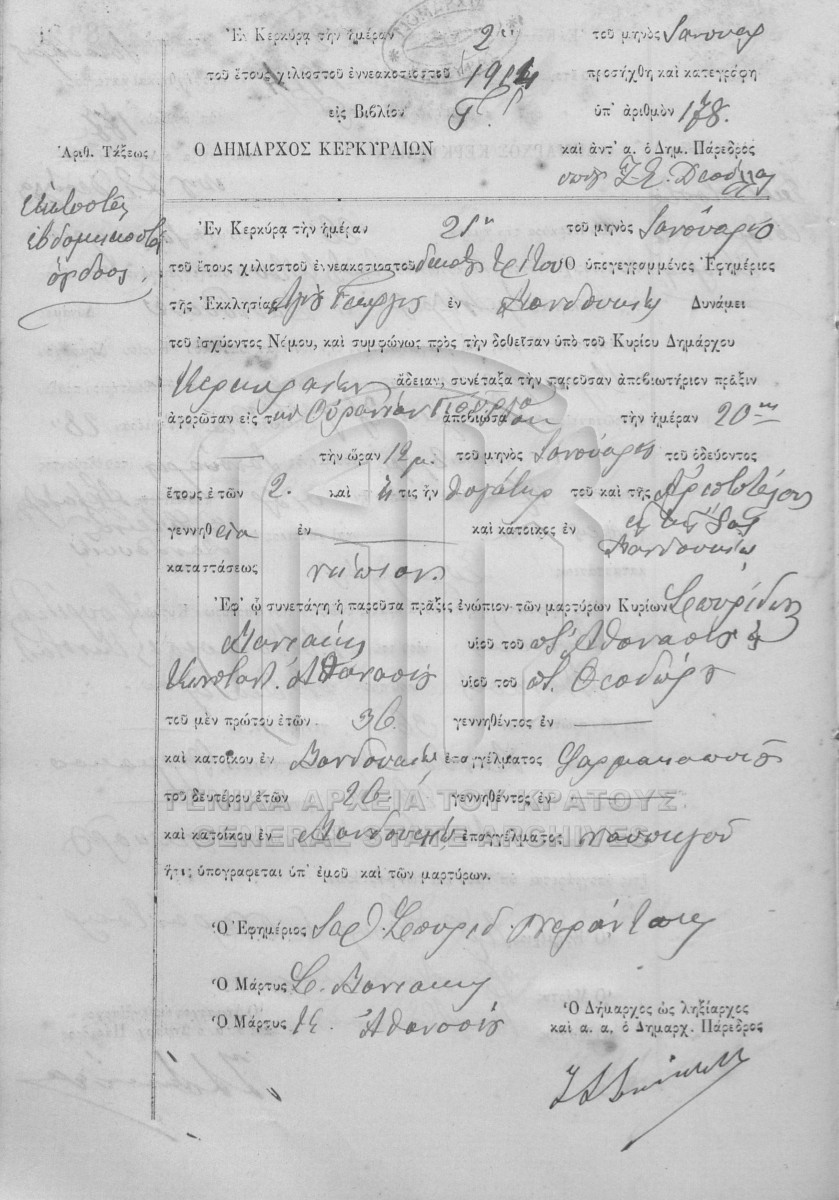 Ἐν Κερκύρᾳ τὴν ἡμέραν τοῦ μηνὸς Ἰανουαρ
τοῦ ἔτους χιλιοστοῦ ἐννεακοσιοστοῦ 1914 προσήχθη καὶ κατεγράφη
εἰς Βιβλίον Γʹ ὑπ' ἀριθμὸν 178.
Ἀριθ. Τάξεως
Ο ΔΗΜΑΡΧΟΣ ΚΕΡΚΥΡΑΙΩΝ καὶ ἀντ' α. ὁ Δημ. Πάρεδρος
ἑκατοστὸς
ἑβδομηκοστὸς
ὄγδοος
Ἐν Κερκύρᾳ τὴν ἡμέραν 21ην τοῦ μηνὸς Ἰανουαρίου
τοῦ ἔτους χιλιοστοῦ ἐννεακοσιοστοῦ δεκάτου τρίτου Ὁ ὑπογεγραμμένος Ἐφημέριος
τῆς Ἐκκλησίας Ἁγίου Γεωργίου ἐν Μανδουκίῳ Δυνάμει
τοῦ ἰσχύοντος Νόμου, καὶ συμφώνως πρὸς τὴν δοθεῖσαν ὑπὸ τοῦ Κυρίου Δημάρχου
Κερκυραίων ἄδειαν, συνέταξα τὴν παροῦσαν ἀποβιωτήριον πρᾶξιν
ἀφορῶσαν εἰς τὴν Οὐρανίαν ἀποβιώσασαν τὴν ἡμέραν 20ην
τὴν ὥραν 12 μ. τοῦ μηνὸς Ἰανουαρίου τοῦ ὁδεύοντος
ἔτους ἐτῶν 2. καὶ ἥτις ἦν θυγάτηρ τοῦ καὶ τῆς Ἀριστοτέλους
γεννηθεῖσα ἐν καὶ κάτοικος ἐν Μανδουκίῳ
καταστάσεως νήπιον.
Ἐφ' ᾧ συνετάγη ἡ παροῦσα πρᾶξις ἐνώπιον τῶν μαρτύρων Κυρίων Σπυρίδωνος
υἱοῦ τοῦ π. Ἀθανασίου &
Κωνσταντ. Ἀθανασίου υἱοῦ τοῦ π. Θεοδώρου
τοῦ μὲν πρώτου ἐτῶν 36 γεννηθέντος ἐν
καὶ κατοίκου ἐν Μανδουκίῳ ἐπαγγέλματος φαρμακοποιοῦ
τοῦ δευτέρου ἐτῶν 26 γεννηθέντος ἐν
ΓΕΝΙΚΑ ΑΡΧΕΙΑ ΤΟΥ ΚΡΑΤΟΥΣ
GENERAL STATE ARCHIVES
καὶ κατοίκου ἐν Μανδουκίῳ ἐπαγγέλματος ναυπηγοῦ
ἥτις ὑπογράφεται ὑπ' ἐμοῦ καὶ τῶν μαρτύρων.
Ὁ Ἐφημέριος Σπυρίδ.
Ὁ Μάρτυς Σ.
Ὁ Μάρτυς Κ. Ἀθανασίου
Ὁ Δήμαρχος ὡς ληξίαρχος
καὶ α. α. ὁ Δημαρχ. Πάρεδρος